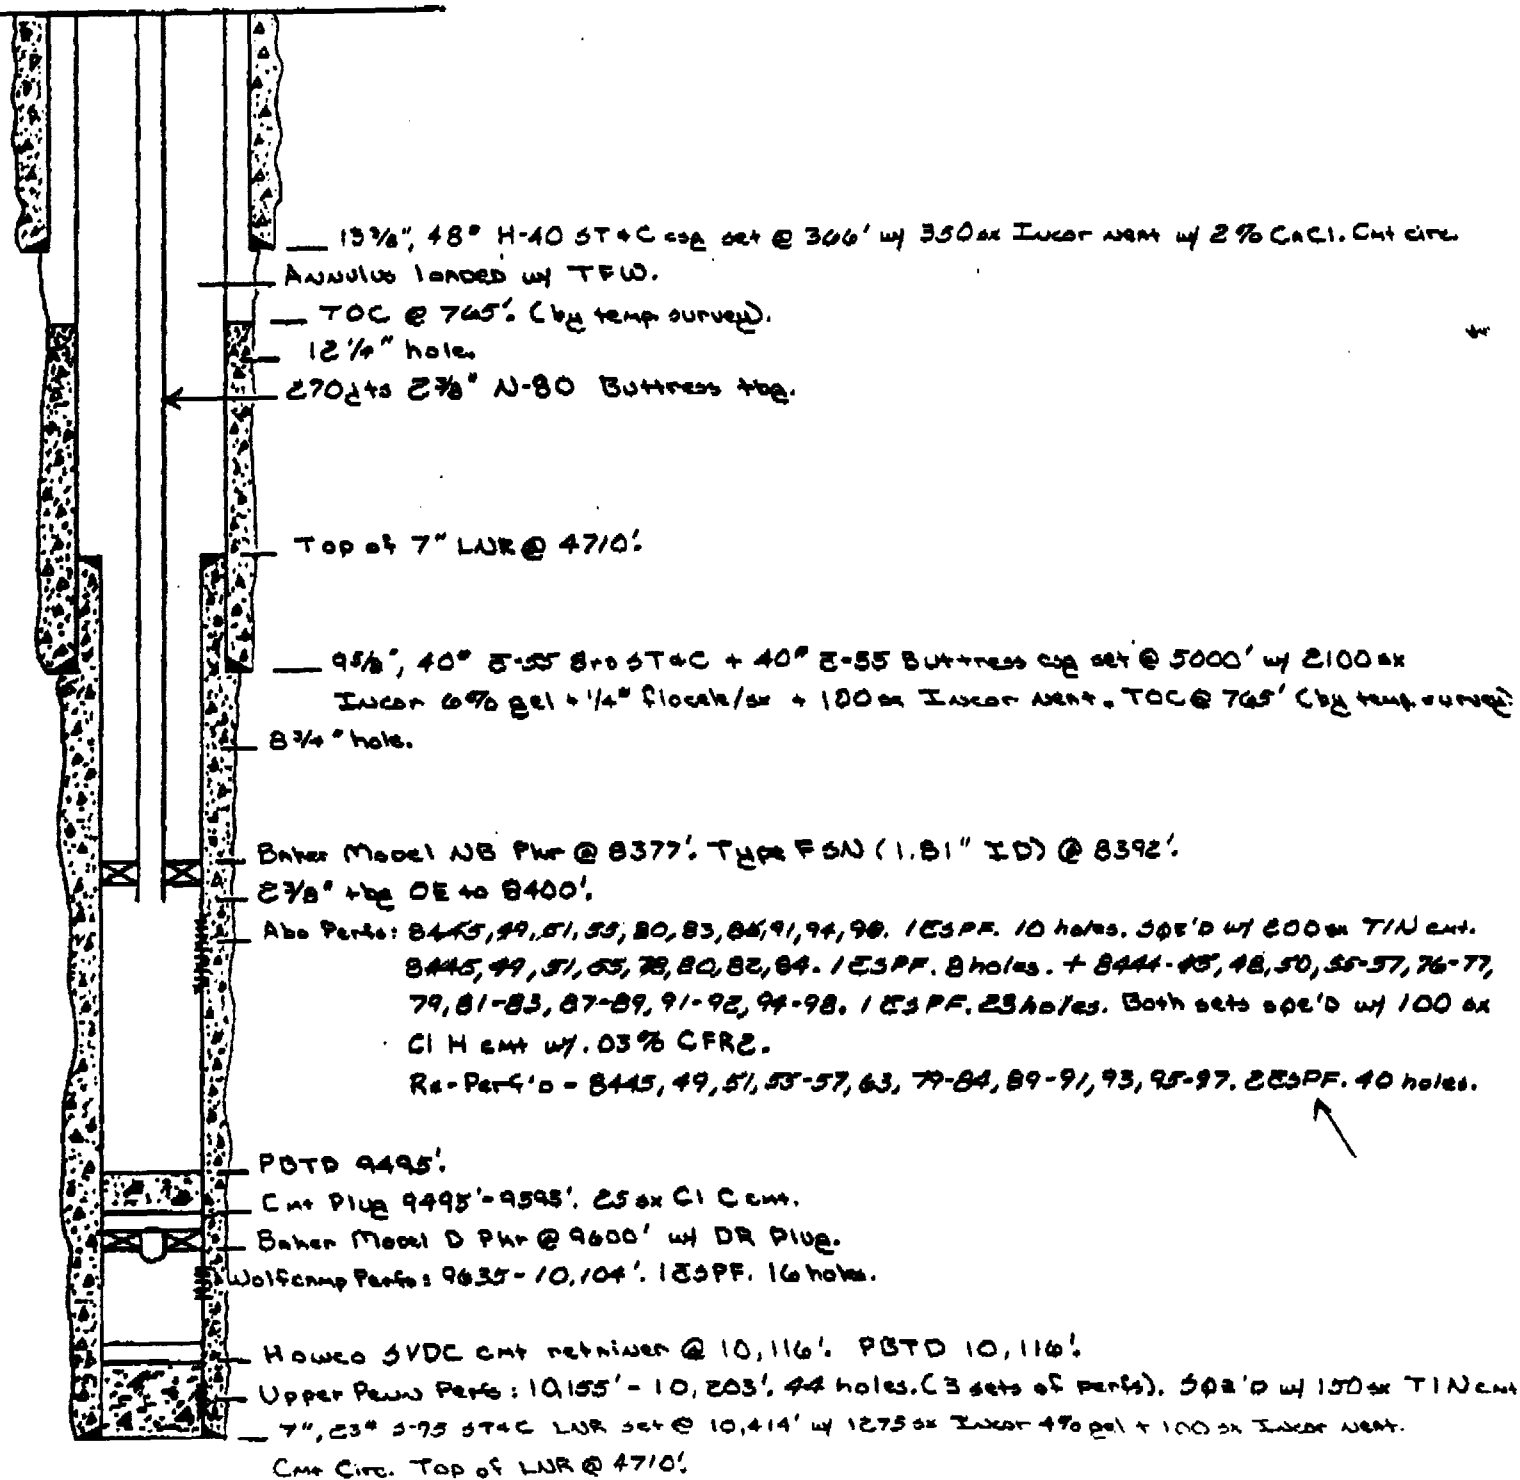 13 3/8", 48# H-40 ST&C csg set @ 366' w/ 350 sx Incor neat w/ 2% CaCl. Cmt circ.
Annulus loaded w/ TFW.
TOC @ 765'. (by temp survey).
12 1/4" hole.
270 jts 2 7/8" N-80 Buttress tbg.
Top of 7" LNR @ 4710'.
9 5/8", 40# 8rd ST&C + 40# Buttress csg set @ 5000' w/ 2100 sx
Incor 6% gel + 1/4# flocele/sx + 100 sx Incor neat. TOC @ 765' (by temp survey).
8 3/4" hole.
Baker Model NB Pkr @ 8377'. Type F SN (1.81" ID) @ 8392'.
2 7/8" tbg OE to 8400'.
Abo Perfs: 8445, 49, 51, 55, 80, 83, 86, 91, 94, 98. 1 JSPF. 10 holes. SQZ'D w/ 200 sx TIN cmt.
8445, 49, 51, 55, 78, 80, 82, 84. 1 JSPF. 8 holes. + 8444-45, 48, 50, 55-57, 76-77,
79, 81-83, 87-89, 91-92, 94-98. 1 JSPF. 23 holes. Both sets sqz'd w/ 100 sx
Cl H cmt w/ .03% CFR2.
Re-Perf'd - 8445, 49, 51, 55-57, 63, 79-84, 89-91, 93, 95-97. 2 JSPF. 40 holes.
PBTD 9495'.
Cmt Plug 9495'-9595'. 25 sx Cl C cmt.
Baker Model D Pkr @ 9600' w/ DR Plug.
Wolfcamp Perfs: 9635-10,104'. 1 JSPF. 16 holes.
Howco SVDC cmt retainer @ 10,116'. PBTD 10,116'.
Upper Penn Perfs: 10,155'-10,203'. 44 holes. (3 sets of perfs). SQZ'D w/ 150 sx TIN cmt
7", 23# S-95 ST&C LNR set @ 10,414' w/ 1275 sx Incor 4% gel + 100 sx Incor neat.
Cmt Circ. Top of LNR @ 4710'.